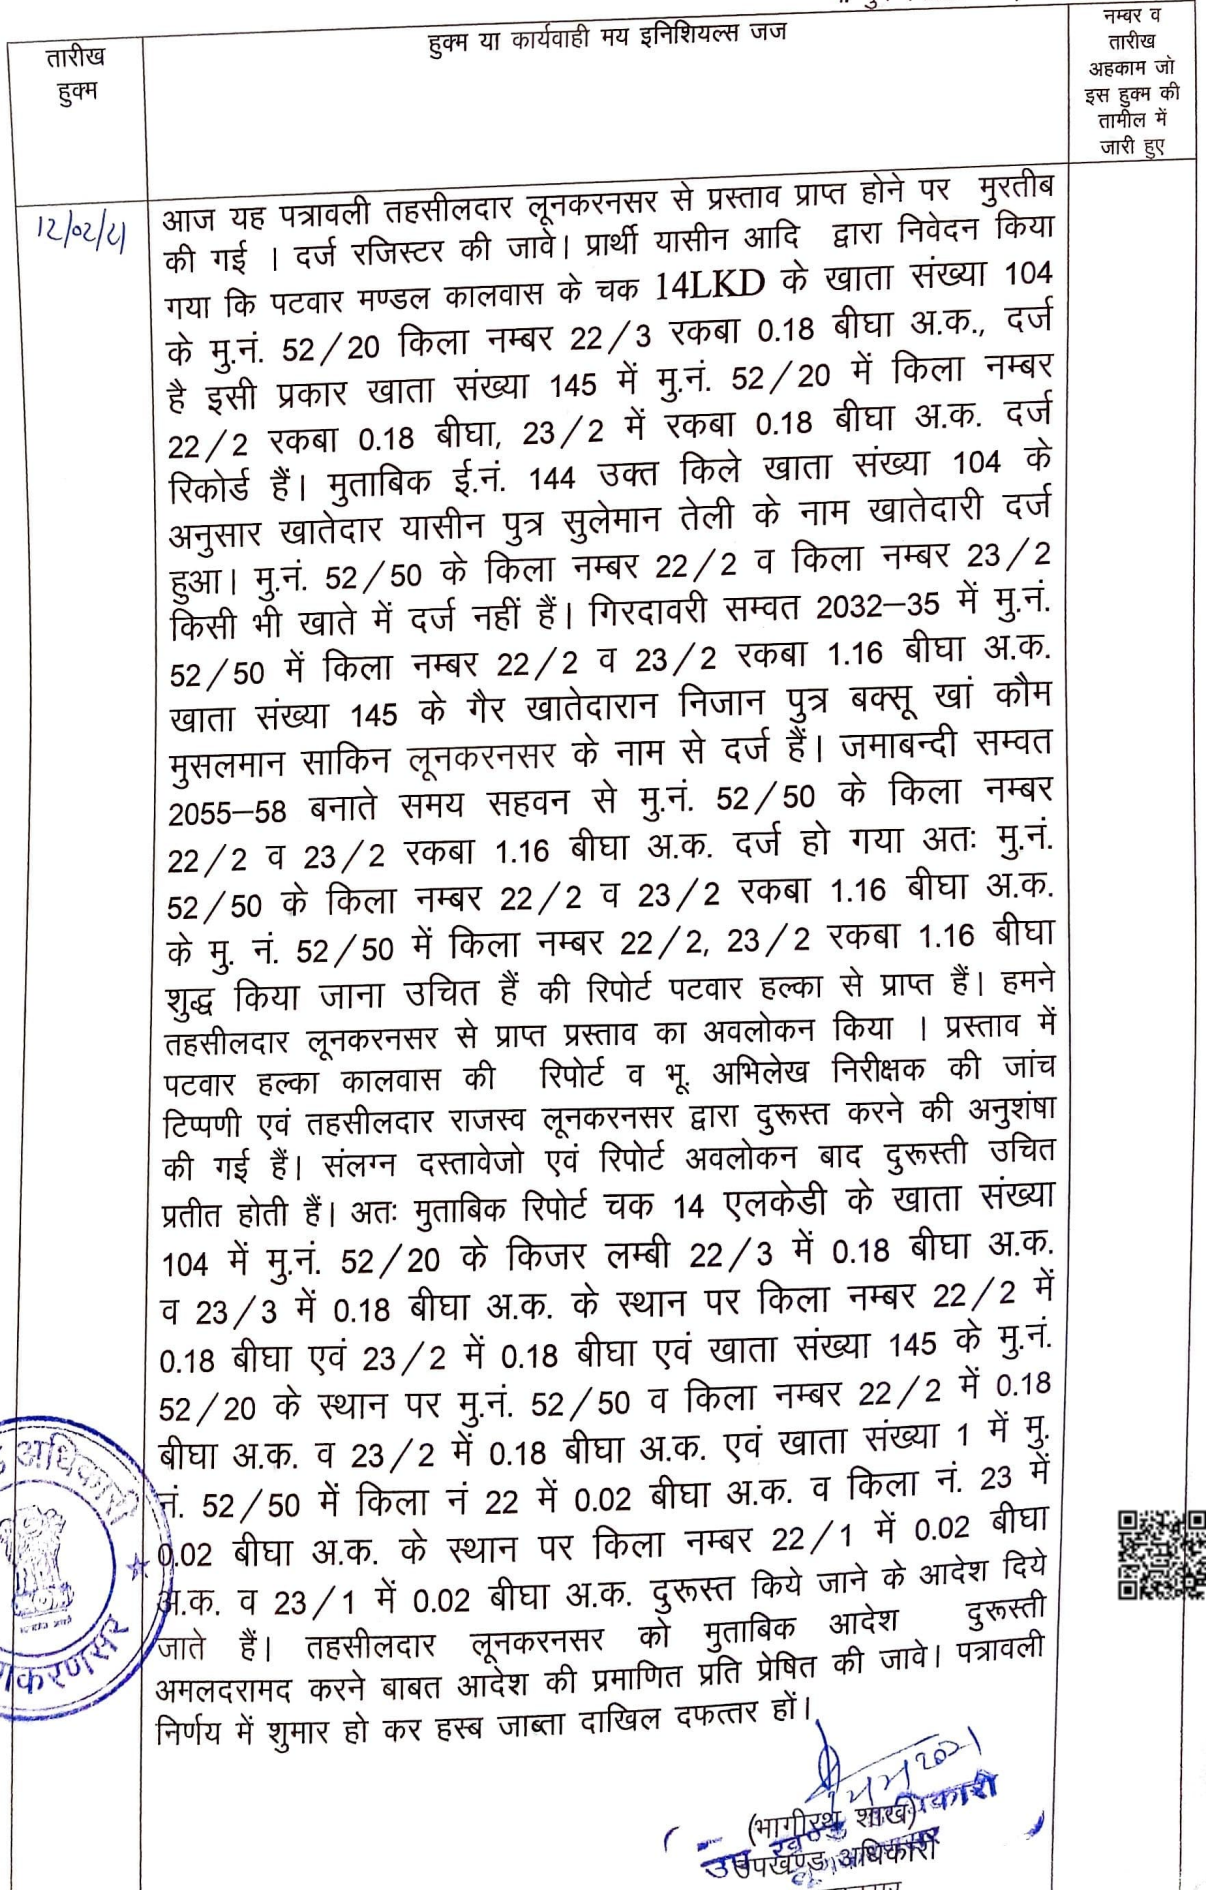 तारीख
हुक्म
हुक्म या कार्यवाही मय इनिशियल्स जज
नम्बर व
तारीख
अहकाम जो
इस हुक्म की
तामील में
जारी हुए
12/02/21
आज यह पत्रावली तहसीलदार लूनकरनसर से प्रस्ताव प्राप्त होने पर मुरतीब
की गई । दर्ज रजिस्टर की जावे। प्रार्थी यासीन आदि द्वारा निवेदन किया
गया कि पटवार मण्डल कालवास के चक 14LKD के खाता संख्या 104
के मु.नं. 52/20 किला नम्बर 22/3 रकबा 0.18 बीघा अ.क., दर्ज
है इसी प्रकार खाता संख्या 145 में मु.नं. 52/20 में किला नम्बर
22/2 रकबा 0.18 बीघा, 23/2 में रकबा 0.18 बीघा अ.क. दर्ज
रिकोर्ड हैं। मुताबिक ई.नं. 144 उक्त किले खाता संख्या 104 के
अनुसार खातेदार यासीन पुत्र सुलेमान तेली के नाम खातेदारी दर्ज
हुआ। मु.नं. 52/50 के किला नम्बर 22/2 व किला नम्बर 23/2
किसी भी खाते में दर्ज नहीं हैं। गिरदावरी सम्वत 2032–35 में मु.नं.
52/50 में किला नम्बर 22/2 व 23/2 रकबा 1.16 बीघा अ.क.
खाता संख्या 145 के गैर खातेदारान निजान पुत्र बक्सू खां कौम
मुसलमान साकिन लूनकरनसर के नाम से दर्ज हैं। जमाबन्दी सम्वत
2055–58 बनाते समय सहवन से मु.नं. 52/50 के किला नम्बर
22/2 व 23/2 रकबा 1.16 बीघा अ.क. दर्ज हो गया अतः मु.नं.
52/50 के किला नम्बर 22/2 व 23/2 रकबा 1.16 बीघा अ.क.
के मु. नं. 52/50 में किला नम्बर 22/2, 23/2 रकबा 1.16 बीघा
शुद्ध किया जाना उचित हैं की रिपोर्ट पटवार हल्का से प्राप्त हैं। हमने
तहसीलदार लूनकरनसर से प्राप्त प्रस्ताव का अवलोकन किया । प्रस्ताव में
पटवार हल्का कालवास की रिपोर्ट व भू. अभिलेख निरीक्षक की जांच
टिप्पणी एवं तहसीलदार राजस्व लूनकरनसर द्वारा दुरूस्त करने की अनुशंषा
की गई हैं। संलग्न दस्तावेजो एवं रिपोर्ट अवलोकन बाद दुरूस्ती उचित
प्रतीत होती हैं। अतः मुताबिक रिपोर्ट चक 14 एलकेडी के खाता संख्या
104 में मु.नं. 52/20 के किजर लम्बी 22/3 में 0.18 बीघा अ.क.
व 23/3 में 0.18 बीघा अ.क. के स्थान पर किला नम्बर 22/2 में
0.18 बीघा एवं 23/2 में 0.18 बीघा एवं खाता संख्या 145 के मु.नं.
52/20 के स्थान पर मु.नं. 52/50 व किला नम्बर 22/2 में 0.18
बीघा अ.क. व 23/2 में 0.18 बीघा अ.क. एवं खाता संख्या 1 में मु.
नं. 52/50 में किला नं 22 में 0.02 बीघा अ.क. व किला नं. 23 में
0.02 बीघा अ.क. के स्थान पर किला नम्बर 22/1 में 0.02 बीघा
अ.क. व 23/1 में 0.02 बीघा अ.क. दुरूस्त किये जाने के आदेश दिये
जाते हैं। तहसीलदार लूनकरनसर को मुताबिक आदेश दुरूस्ती
अमलदरामद करने बाबत आदेश की प्रमाणित प्रति प्रेषित की जावे। पत्रावली
निर्णय में शुमार हो कर हस्ब जाब्ता दाखिल दफत्तर हों।
अधिकारी
(भागीरथ शाख)
उप खण्ड अधिकारी
उपखण्ड अधिकारी